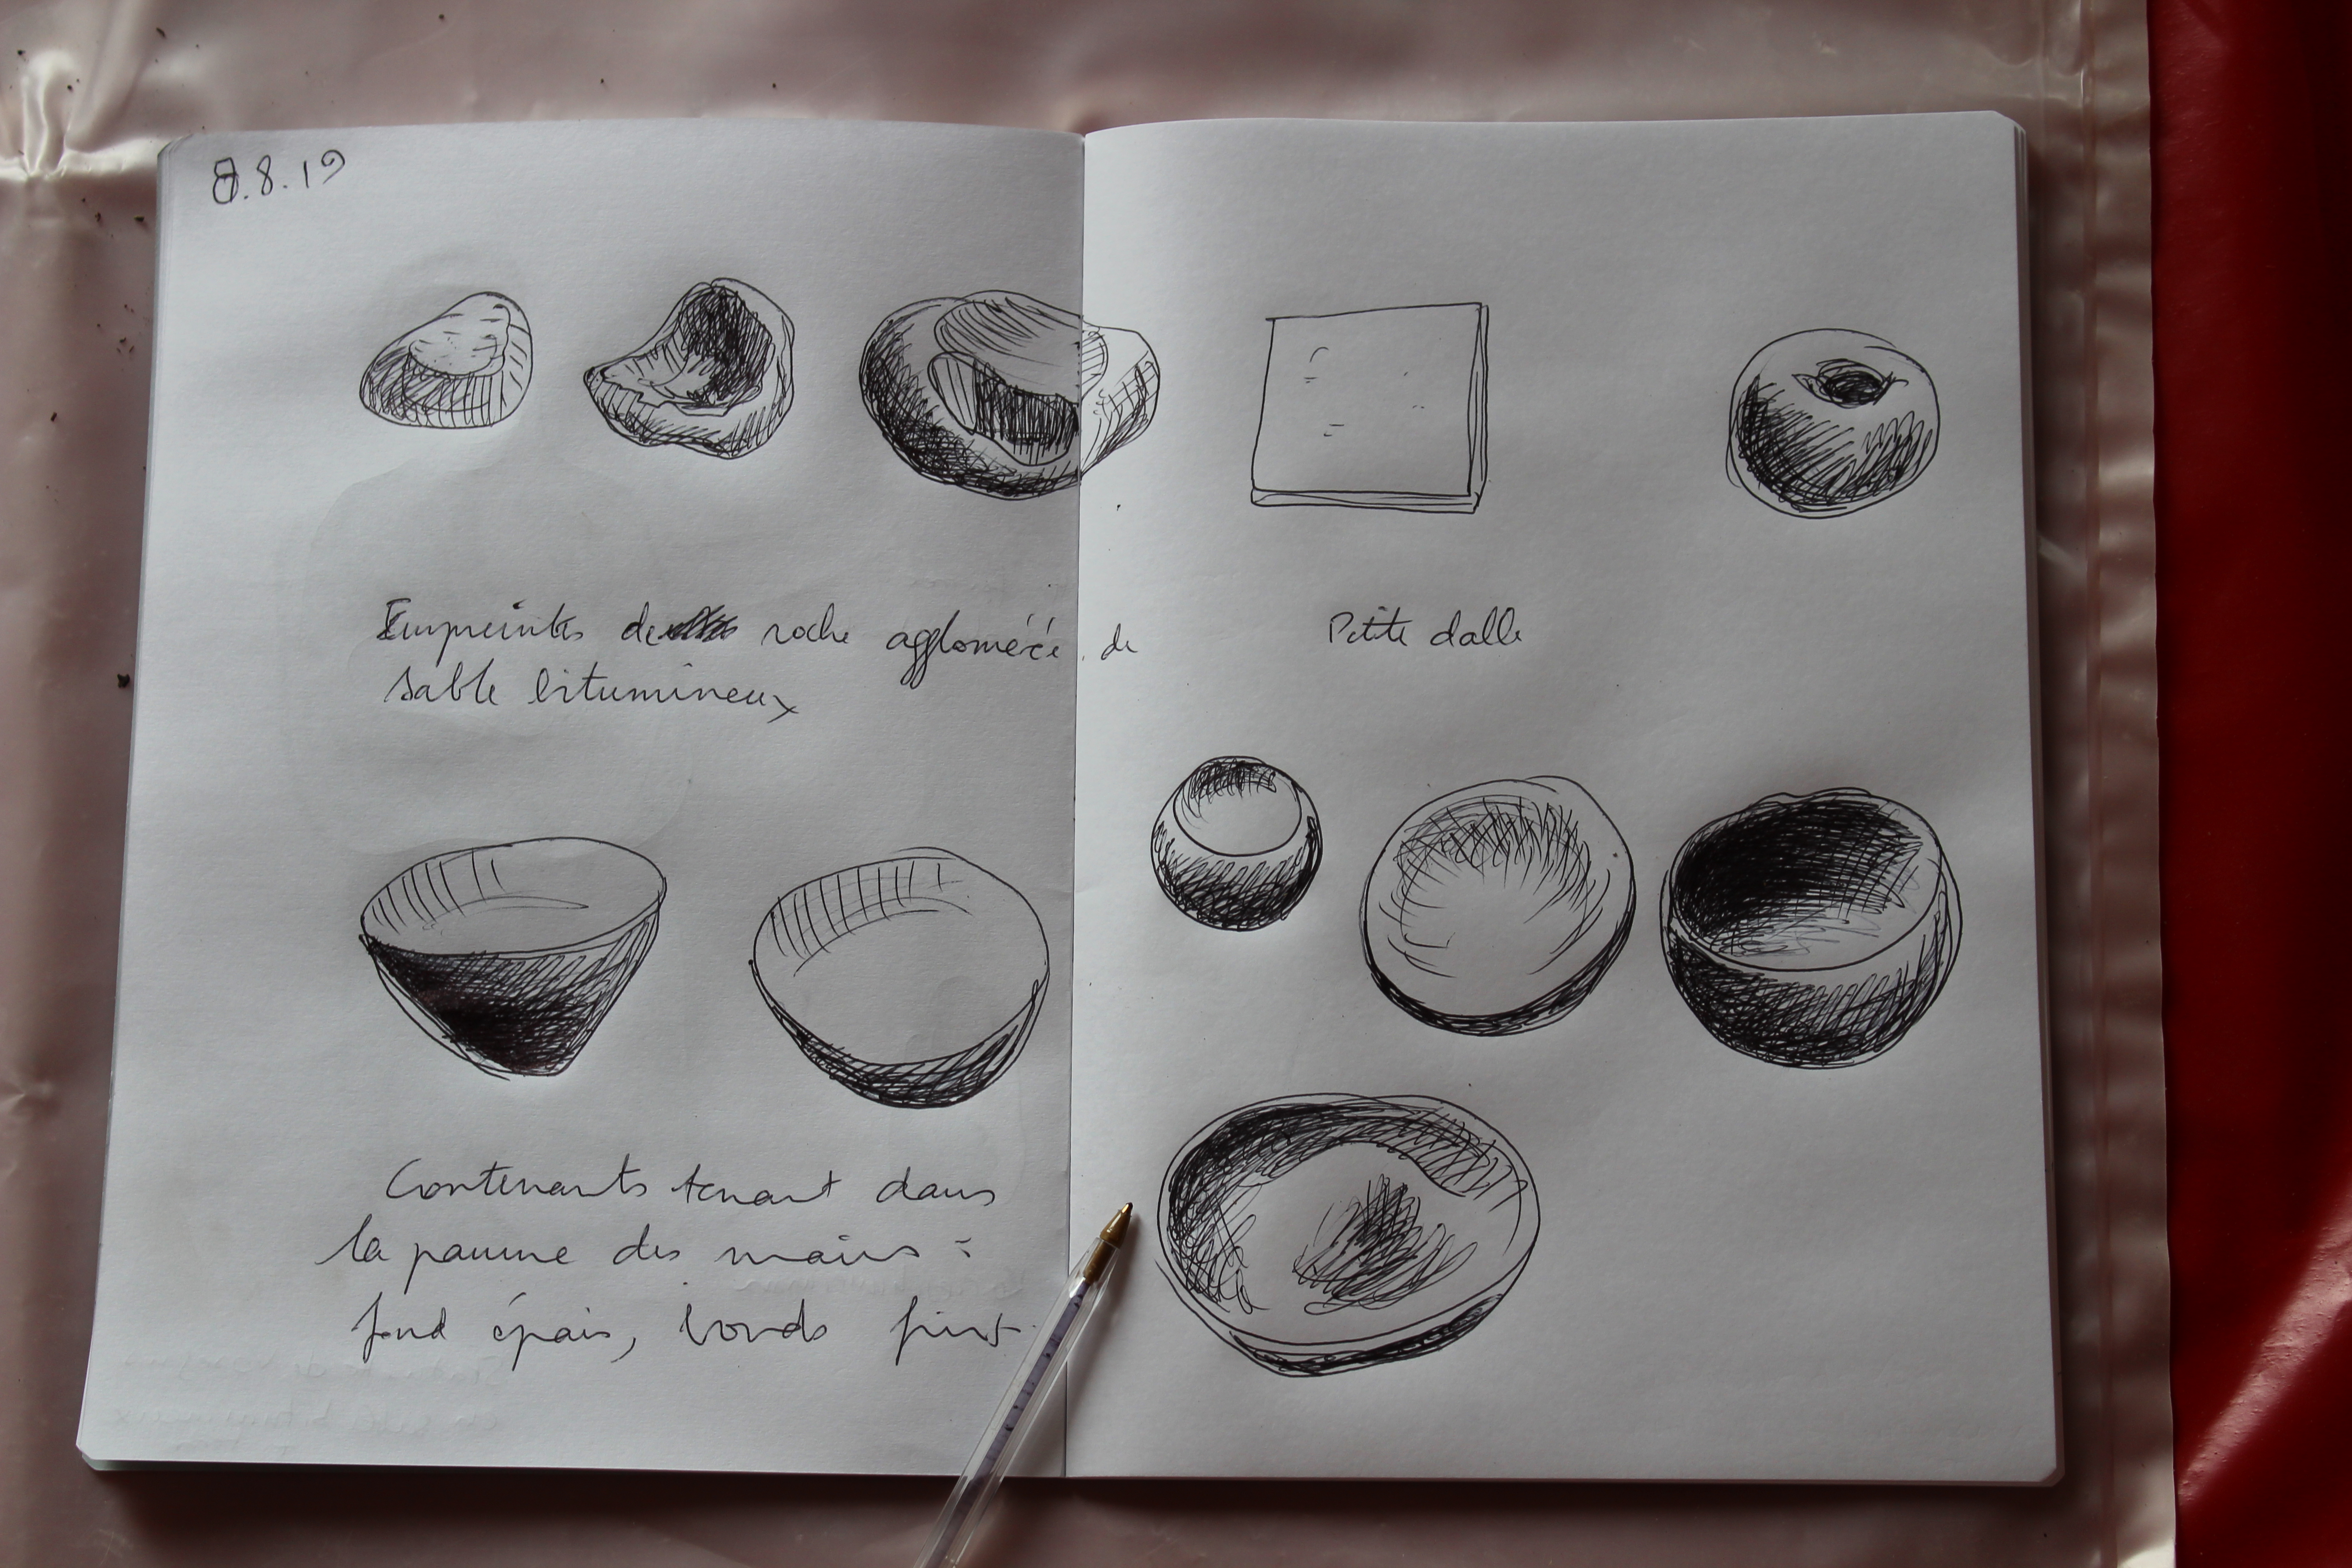 8.8.19
Empreintes de roche agglomérée de
sable bitumineux
Petite dalle
Contenants tenant dans
la paume des mains :
fond épais, bords fins.